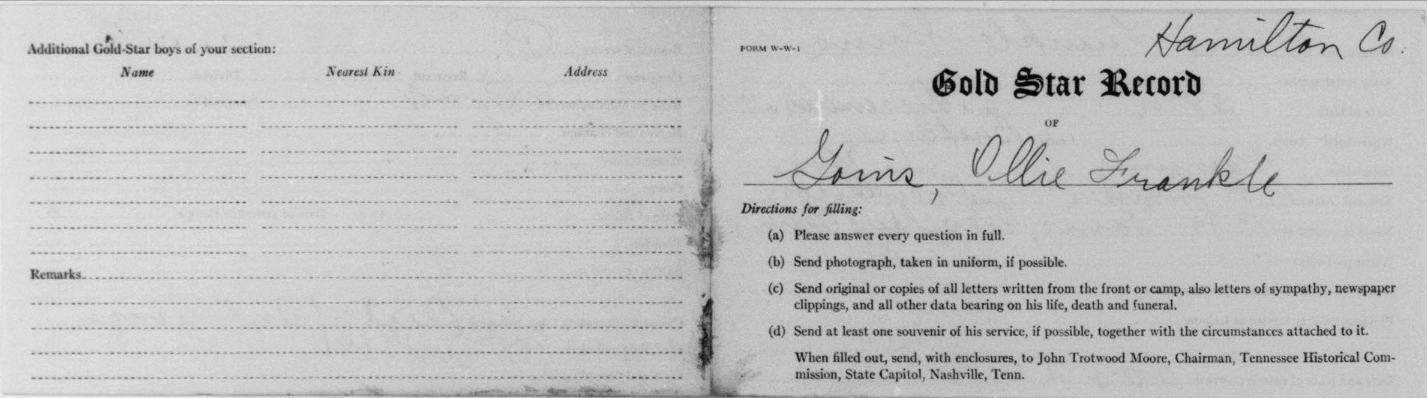 Additional Gold-Star boys of your section:
Name Nearest Kin Address
Remarks
FORM W-W-1
Hamilton Co.
Gold Star Record
OF
Goins, Ollie Frankle
Directions for filling:
(a) Please answer every question in full.
(b) Send photograph, taken in uniform, if possible.
(c) Send original or copies of all letters written from the front or camp, also letters of sympathy, newspaper
clippings, and all other data bearing on his life, death and funeral.
(d) Send at least one souvenir of his service, if possible, together with the circumstances attached to it.
When filled out, send, with enclosures, to John Trotwood Moore, Chairman, Tennessee Historical Com-
mission, State Capitol, Nashville, Tenn.